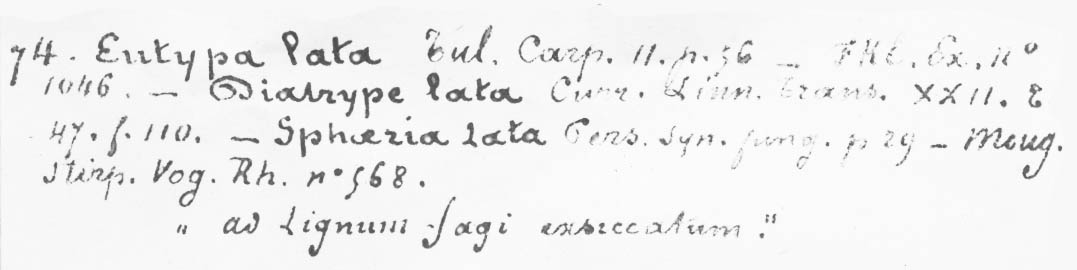 74. Eutypa lata Tul. Carp. 11. p. 56 — FKl. Ex. nº
1046. — Diatrype lata Curr. Linn. Trans. XXII. t
47. f. 110. — Sphæria lata Pers. Syn. fung. p 29 — Moug.
Stirp. Vog. Rh. nº 568.
" ad Lignum fagi exsiccatum."